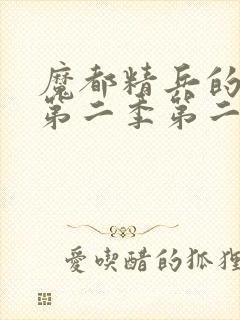 魔都精兵的
第二季第二
愛喫醋的狐狸